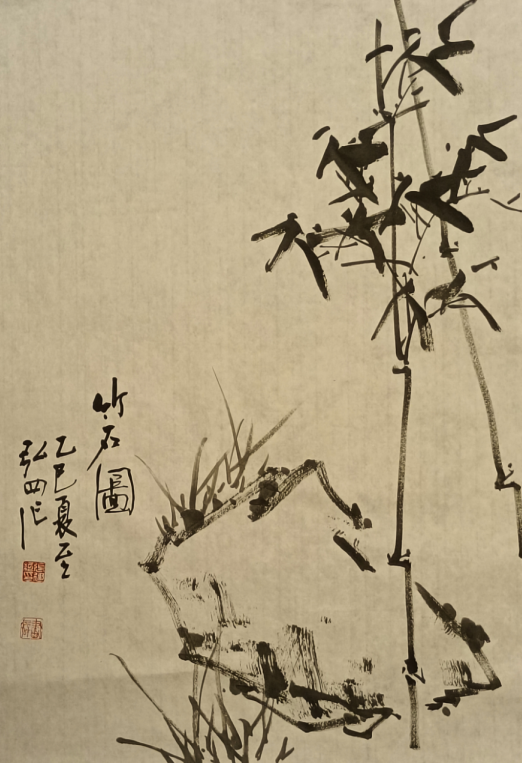 竹石圖
乙巳夏至
弘四作